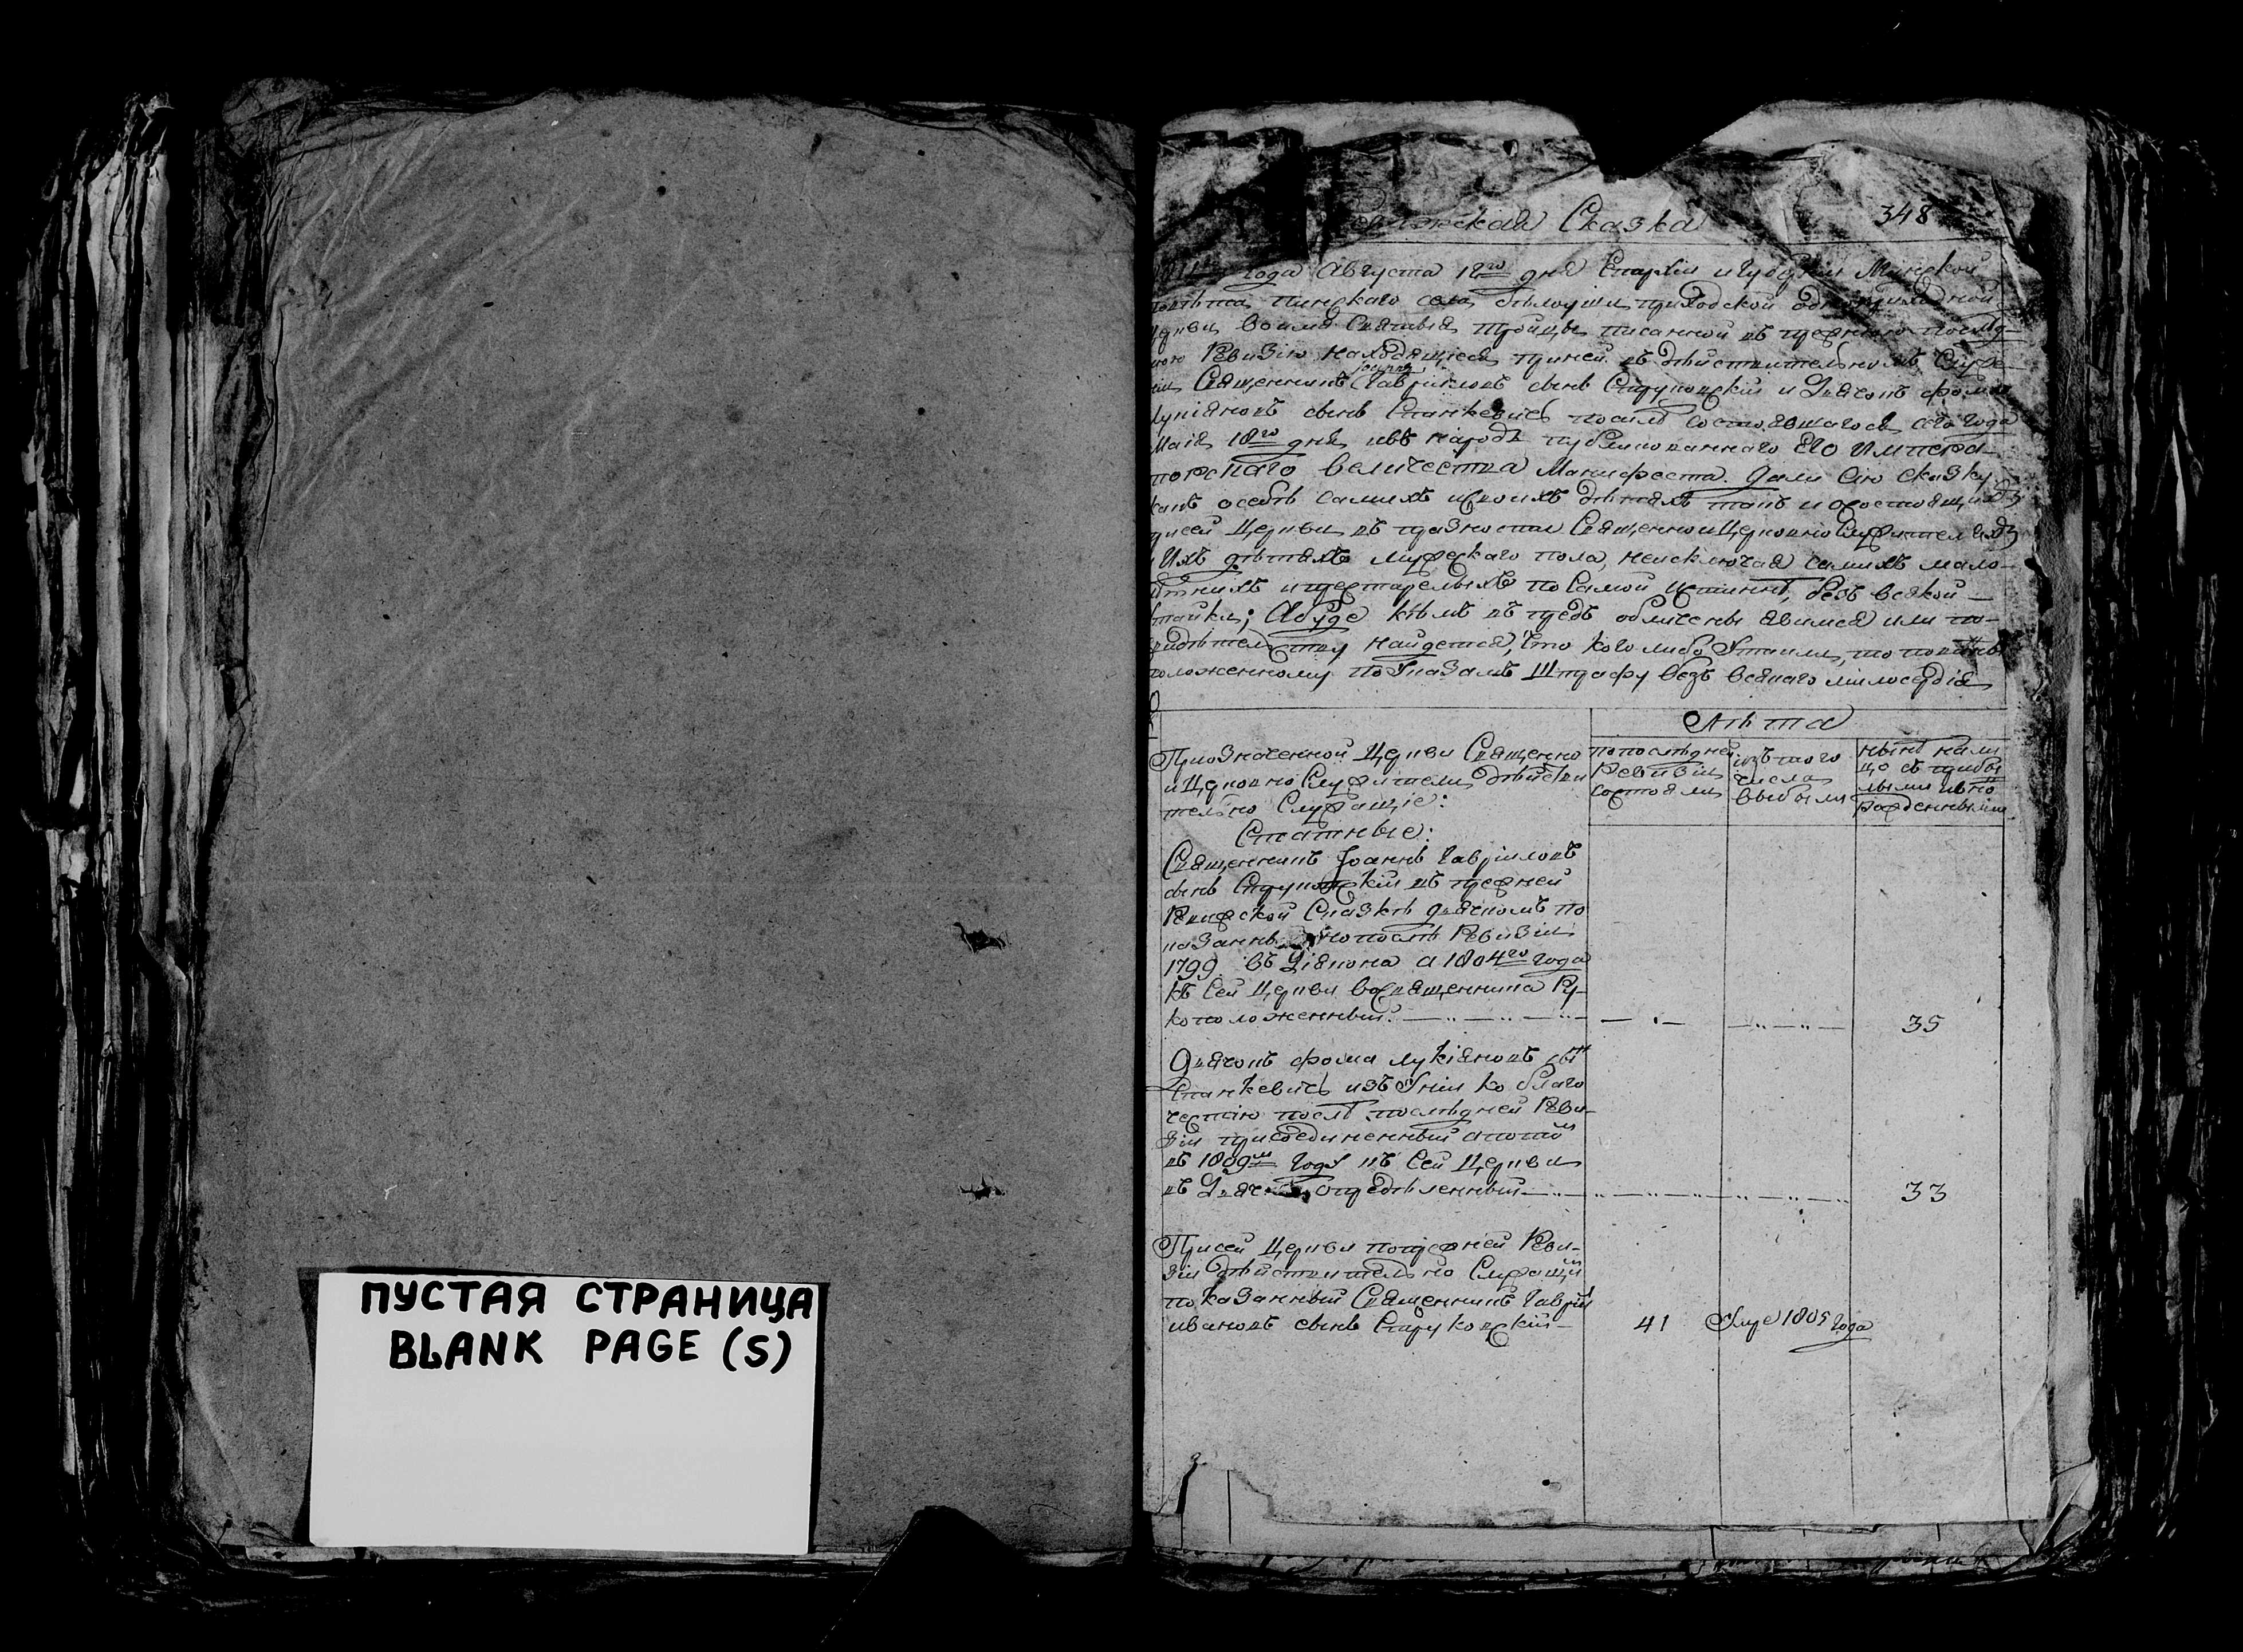 ПУСТАЯ СТРАНИЦА
BLANK PAGE (S)
Сказка
348
года Августа 12го дня Епархіи и Губерніи Минской
повѣта пинскаго села бѣлоуши приходской однокомплектной
Церкви во имя Святыя Тройцы писанной въ прежнюю послѣд-
нюю Ревизію находящіеся при ней въ дѣйствительномъ Служе-
ніи Священникъ Іоаннъ Гавріиловъ сынъ Струковскій и Дьячокъ фома
Лукіяновъ сынъ Станкевичъ послѣ состоявшагося сего года
Маія 18го дня въ народъ публикованнаго Его Импера-
торскаго величества Манифеста. Дали сію сказку
какъ о себѣ самихъ и своихъ дѣтяхъ такъ и о состоящихъ
при сей Церкви въ праздности Священно и Церковно Служителяхъ
и Ихъ дѣтяхъ мужескаго пола, неисключая самихъ мало-
лѣтнихъ и престарелыхъ по Самой Истиннѣ, безъ всякой
утайки; А буде кѣмъ въ предь обличены явимся или по
свидѣтелству найдется, что кого либо Утаили, то повинны
положенному по Указамъ Штрафу безъ всякаго милосердія
Лѣта
При означенной Церкви Священно
и Церковно Служители дѣйстви
тельно Служащіе:
по последней
Ревизіи
состояли
изъ того
числа
выбыли
нынѣ нали
цо съ прибы
лыми и но
рожденными
Статные:
Священникъ Іоаннъ Гавріиловъ
сынъ Струковскій въ прежней
Ревижской Сказкѣ дьячкомъ по
казаннъ но послѣ Ревизіи
1799 въ Діякона а 1804го года
къ Сей Церкви во священника Ру-
коположенный. 35
Дьячокъ фома лукіяновъ сынъ
Станкевичъ изъ Уніи ко благо
честію послѣ последней Реви-
зіи присоединенный а потомъ
въ 1809мъ году къ Сей Церкви
въ опредѣленный 33
При сей Церкви по прежней Реви-
зіи дѣйствительно Служащимъ
показанный Священникъ Гавріилъ
ивановъ сынъ Струковскій 41 Умре 1805 года